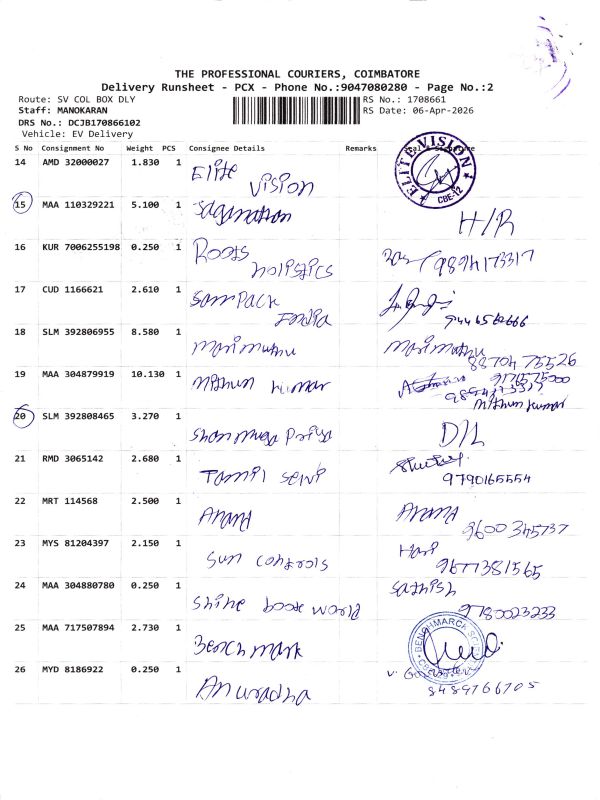 THE PROFESSIONAL COURIERS, COIMBATORE
Delivery Runsheet - PCX - Phone No.:9047080280 - Page No.:2
Route: SV COL BOX DLY
RS No.: 1708661
Staff: MANOKARAN
RS Date: 06-Apr-2026
DRS No.: DCJB170866102
Vehicle: EV Delivery
S No Consignment No Weight PCS Consignee Details Remarks Seal & Signature
14 AMD 32000027 1.830 1 Elite Vision ELITE VISION CBE-12
15 MAA 110329221 5.100 1 H/R
16 KUR 7006255198 0.250 1 Roots holistics 9894173317
17 CUD 1166621 2.610 1 Sam Pack India
18 SLM 392806955 8.580 1 Marimuthu Marimuthu 8870475526
19 MAA 304879919 10.130 1 Mithun kumar 9894173317 Mithun kumar
20 SLM 392808465 3.270 1 Shanmuga Priya D/L
21 RMD 3065142 2.680 1 Tamil selvi 9790165554
22 MRT 114568 2.500 1 Anand Anand 9600345737
23 MYS 81204397 2.150 1 Sun controls Hari 9677381565
24 MAA 304880780 0.250 1 Shine book world Sathish 9780023233
25 MAA 717507894 2.730 1 Benchmark BENCHMARCK
26 MYD 8186922 0.250 1 Anuradha 8489766705